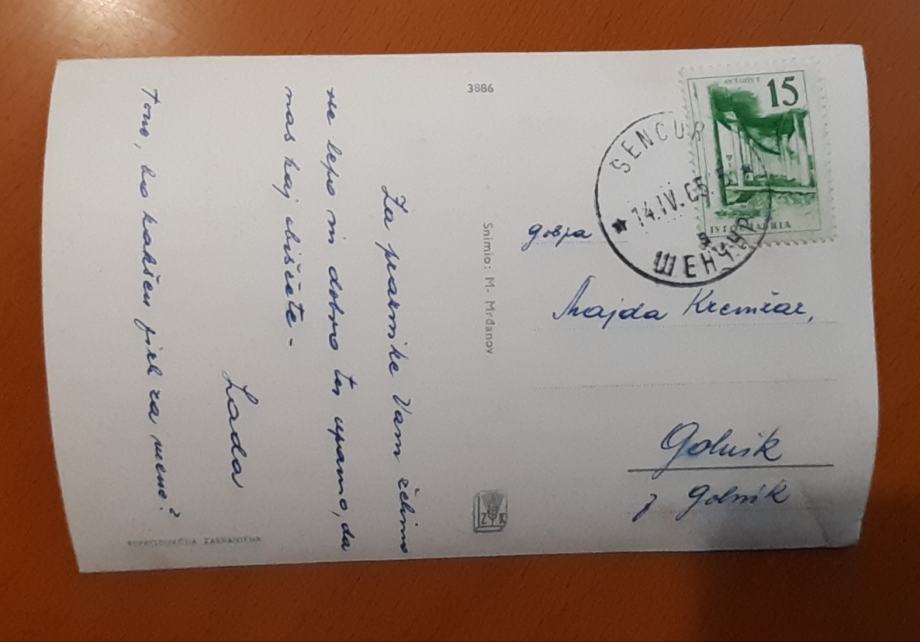 3886
Za praznike Vam želimo
vse lepo in dobro ter upamo, da
nas kaj obiščete -
Lada
Tono, bo kakšen pirh za mene?
Snimio: M. Mrđanov
REPRODUKCIJA ZABRANJENA
15
JUGOSLAVIJA
ŠENČUR
14.IV.65
ШЕНЧУР
gospa
Majda Kremžar,
Golnik
p. Golnik